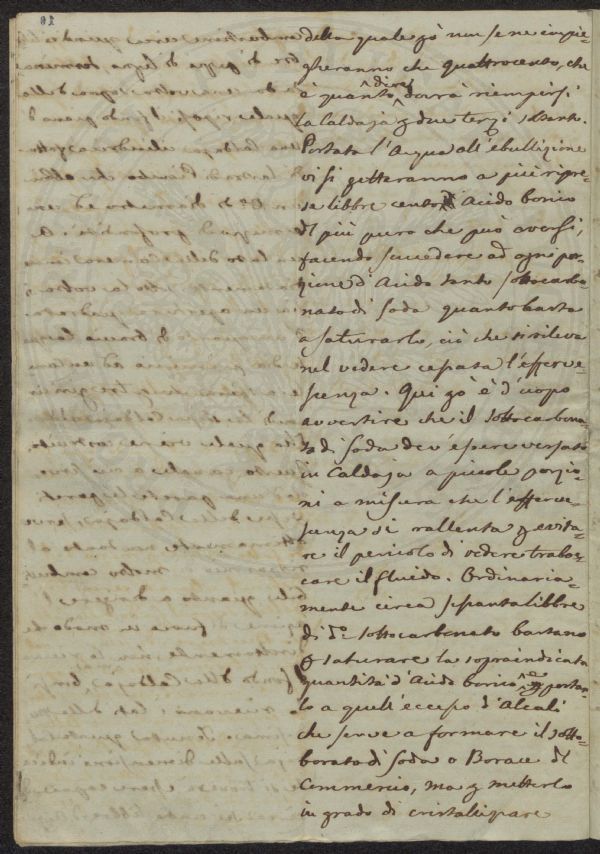 della quale però non se ne impie-
gheranno che quattrocento, che
è quanto dire dovrà riempirsi
la Caldaja p due terzi soltanto.
Portata l'Acqua all'ebullizione
vi si getteranno a più ripre-
se libbre cento Acido borico
il più puro che può aversi,
facendo succedere ad ogni por-
zione d'Acido tanto sottocarbo-
nato di soda quanto basta
a saturarlo, ciò che si rileva
nel vedere cessata l'efferve-
scenza. Qui pò è d'uopo
avvertire che il sottocarbona-
to di soda dev'essere versato
in Caldaja a piccole porzio-
ni a misura che l'efferve-
scenza si rallenta p evita-
re il pericolo di vedere traboc-
care il fluido. Ordinaria-
mente circa sessanta libbre
di do sottocarbonato bastano
p saturare la sopraindicata
quantità d'Acido borico, e portar-
lo a quell'eccesso d'Alcali
che serve a formare il sotto-
borato di soda o Borace del
Commercio, ma p metterlo
in grado di cristallizzare